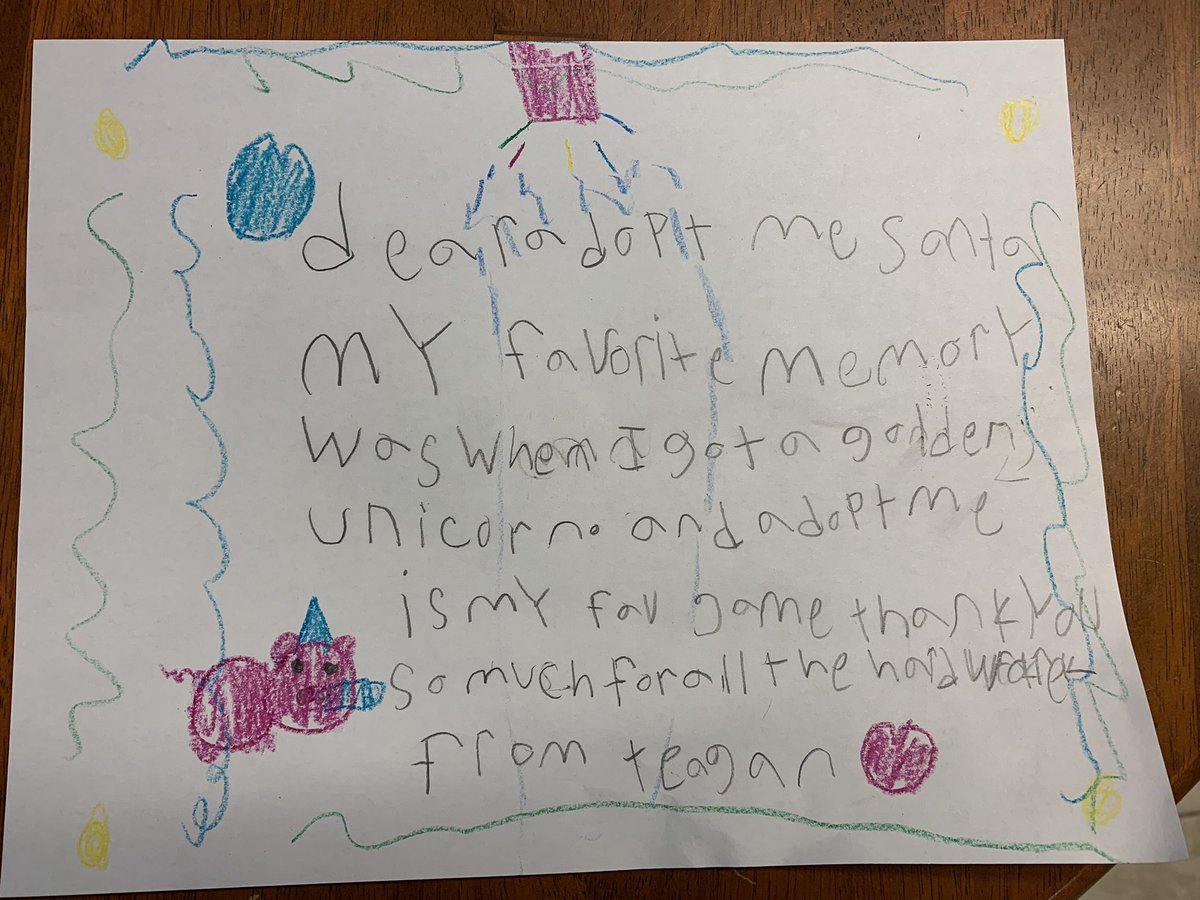 dear adopt me santa
MY favorite memory
was when I got a goldden
unicorn. and adopt me
is mY fav game thank You
so much for all the hard
from teagan